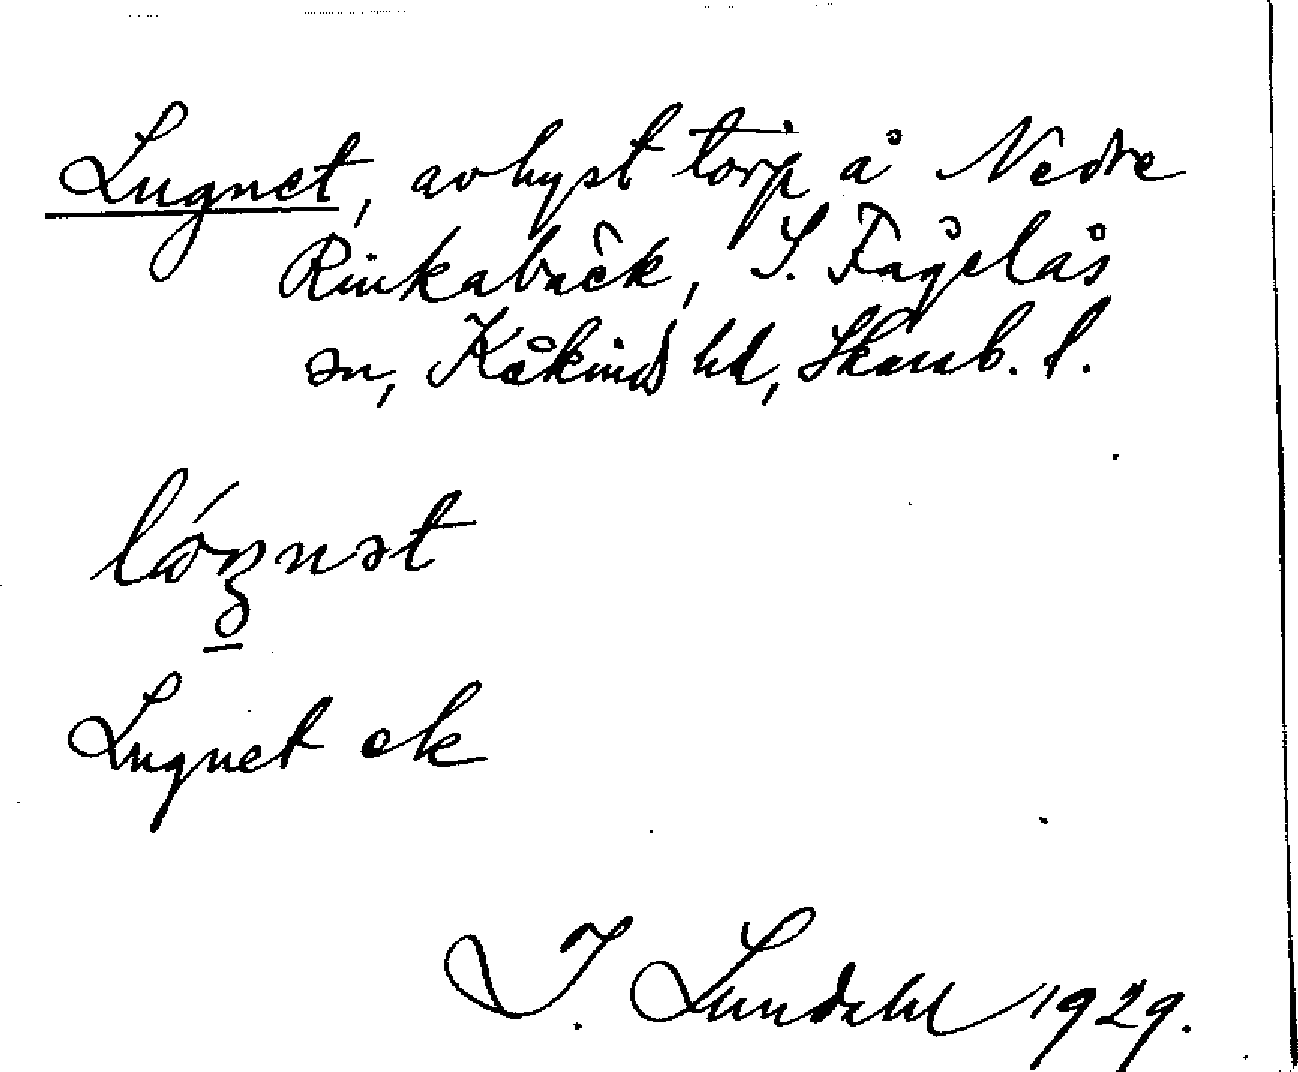 Lugnet, avhyst torp å Nedre
Rinkabäck, S. Fågelås
sn, Kåkinds hd, Skarab. l.
lógnət
Lugnet ek
I. Lundahl 1929.